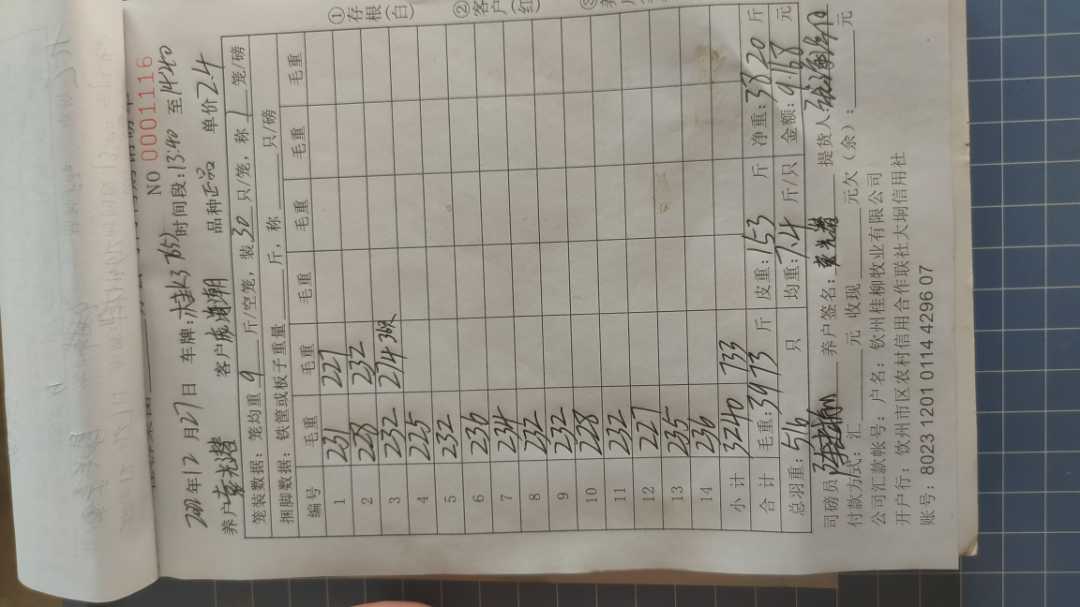 NO 0001116
月27日 车牌: 时间段:13:40 至14:20
养户 客户 品种正品 单价2.4
笼装数据: 笼均重 9 斤/空笼, 装 30 只/笼, 称 1 笼/磅
捆脚数据: 铁筐或板子重量 斤, 称 只/磅
编号 毛重 毛重 毛重 毛重 毛重 毛重
1 231 227
2 228 232
3 232 274
4 225
5 232
6 236
7 234
8 232
9 232
10 228
11 232
12 227
13 235
14 236
小计 3240 733
合计 毛重: 3973 斤 皮重: 153 斤 净重: 3820 斤
总羽重: 516 只 均重: 7.4 斤/只 金额: 9168 元
司磅员 养户签名: 提货人:
付款方式: 汇 元 收现 元欠(余): 元
公司汇款帐号: 户名: 钦州桂柳牧业有限公司
开户行: 钦州市区农村信用合作联社大垌信用社
账号: 8023 1201 0114 4296 07
①存根(白)
②客户(红)